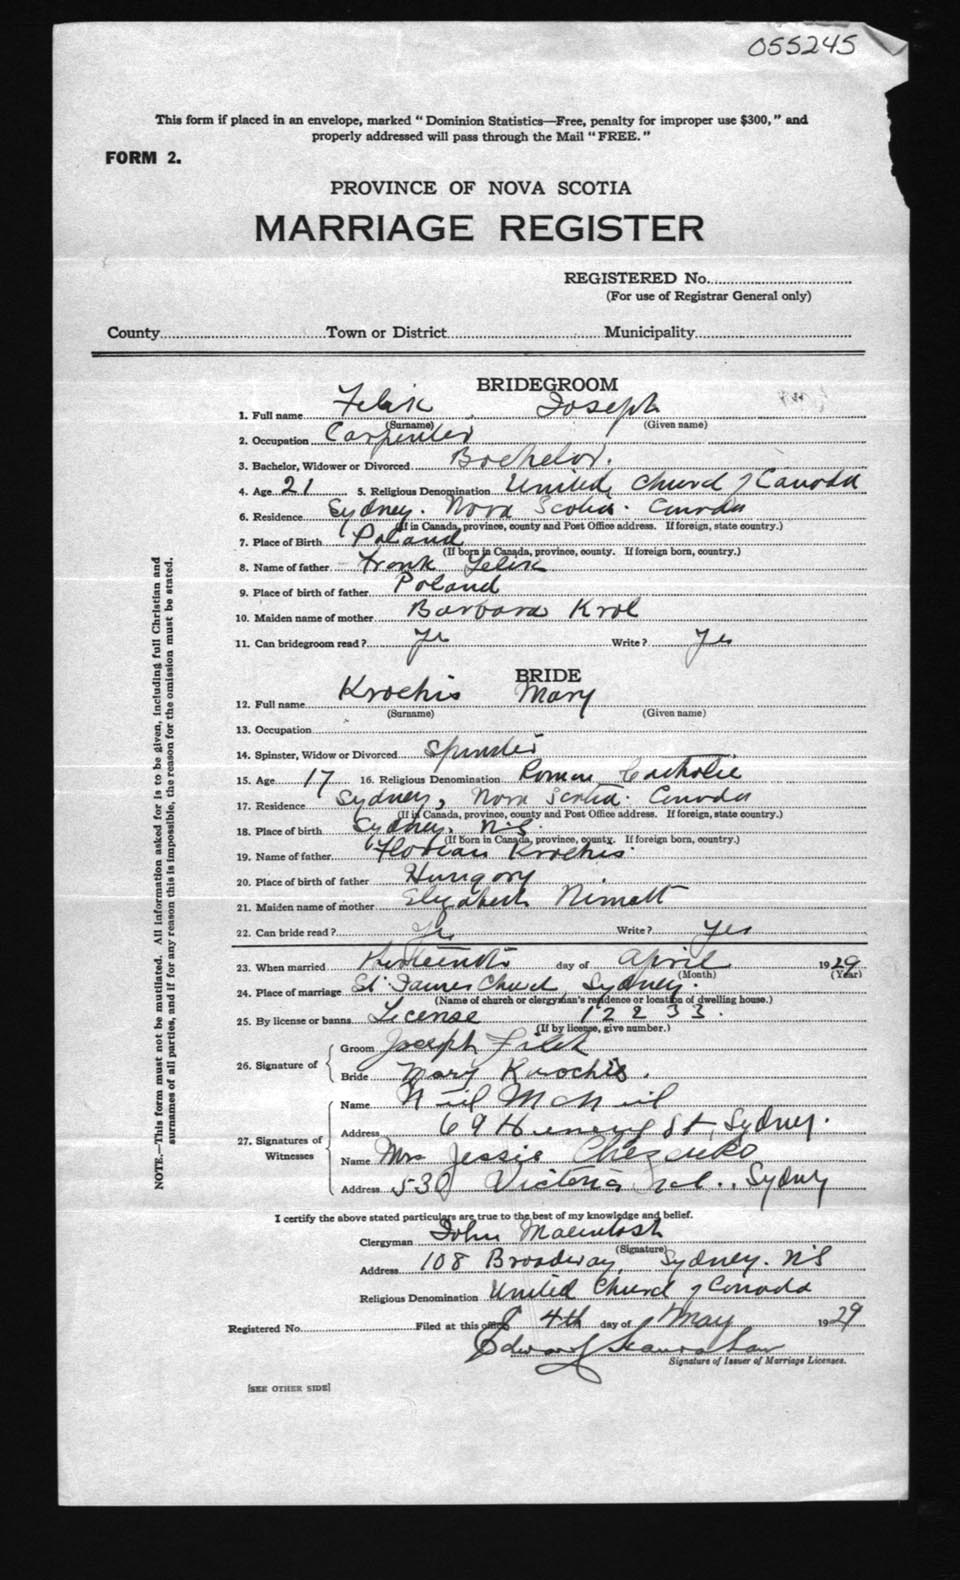 055245
This form if placed in an envelope, marked "Dominion Statistics—Free, penalty for improper use $300," and
properly addressed will pass through the Mail "FREE."
FORM 2.
PROVINCE OF NOVA SCOTIA
MARRIAGE REGISTER
REGISTERED No.
(For use of Registrar General only)
County Town or District Municipality
BRIDEGROOM
1. Full name Felik Joseph
(Surname) (Given name)
2. Occupation Carpenter
3. Bachelor, Widower or Divorced Bachelor.
4. Age 21 5. Religious Denomination United Church of Canada
6. Residence Sydney. Nova Scotia. Canada
(If in Canada, province, county and Post Office address. If foreign, state country.)
7. Place of Birth Poland
(If born in Canada, province, county. If foreign born, country.)
8. Name of father Frank Felik
9. Place of birth of father Poland
10. Maiden name of mother Barbara Krol
11. Can bridegroom read? Yes Write? Yes
BRIDE
12. Full name Krochis Mary
(Surname) (Given name)
13. Occupation
14. Spinster, Widow or Divorced Spinster
15. Age 17 16. Religious Denomination Roman Catholic
17. Residence Sydney, Nova Scotia. Canada
(If in Canada, province, county and Post Office address. If foreign, state country.)
18. Place of birth Sydney. N.S.
(If born in Canada, province, county. If foreign born, country.)
19. Name of father Florian Krochis.
20. Place of birth of father Hungary
21. Maiden name of mother Elizabeth
22. Can bride read? Yes Write? Yes
23. When married day of April 1929
(Month) (Year)
24. Place of marriage St James Church, Sydney.
(Name of church or clergyman's residence or location of dwelling house.)
25. By license or banns License 12233.
(If by license, give number.)
26. Signature of
Groom Joseph Filek
Bride Mary Krochis.
27. Signatures of Witnesses
Name Neil McNeil
Address 69 St, Sydney.
Name Mrs Jessie
Address 530 Victoria Rd., Sydney
I certify the above stated particulars are true to the best of my knowledge and belief.
Clergyman John Macintosh
(Signature)
Address 108 Broadway, Sydney. N.S
Religious Denomination United Church of Canada
Registered No. Filed at this office 4th day of May 1929
Edward
Signature of Issuer of Marriage Licenses.
[SEE OTHER SIDE]
NOTE.—This form must not be mutilated. All information asked for is to be given, including full Christian and
surnames of all parties, and if for any reason this is impossible, the reason for the omission must be stated.